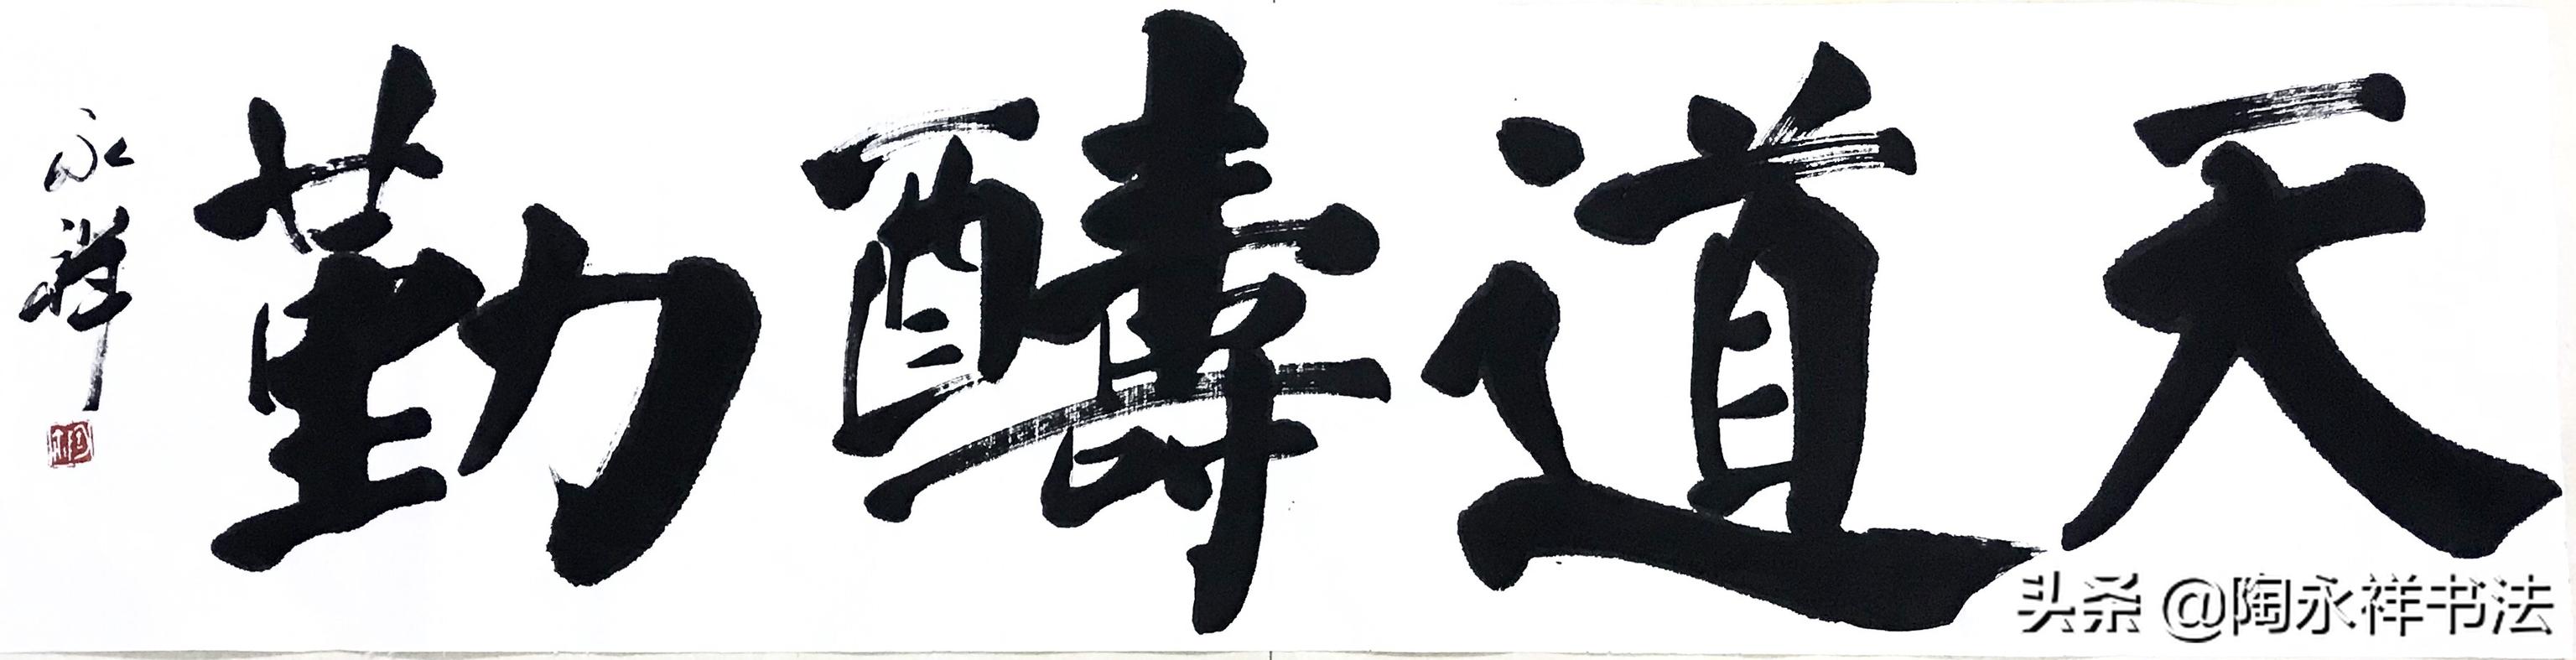 天道酬勤
永祥
头条 @陶永祥书法